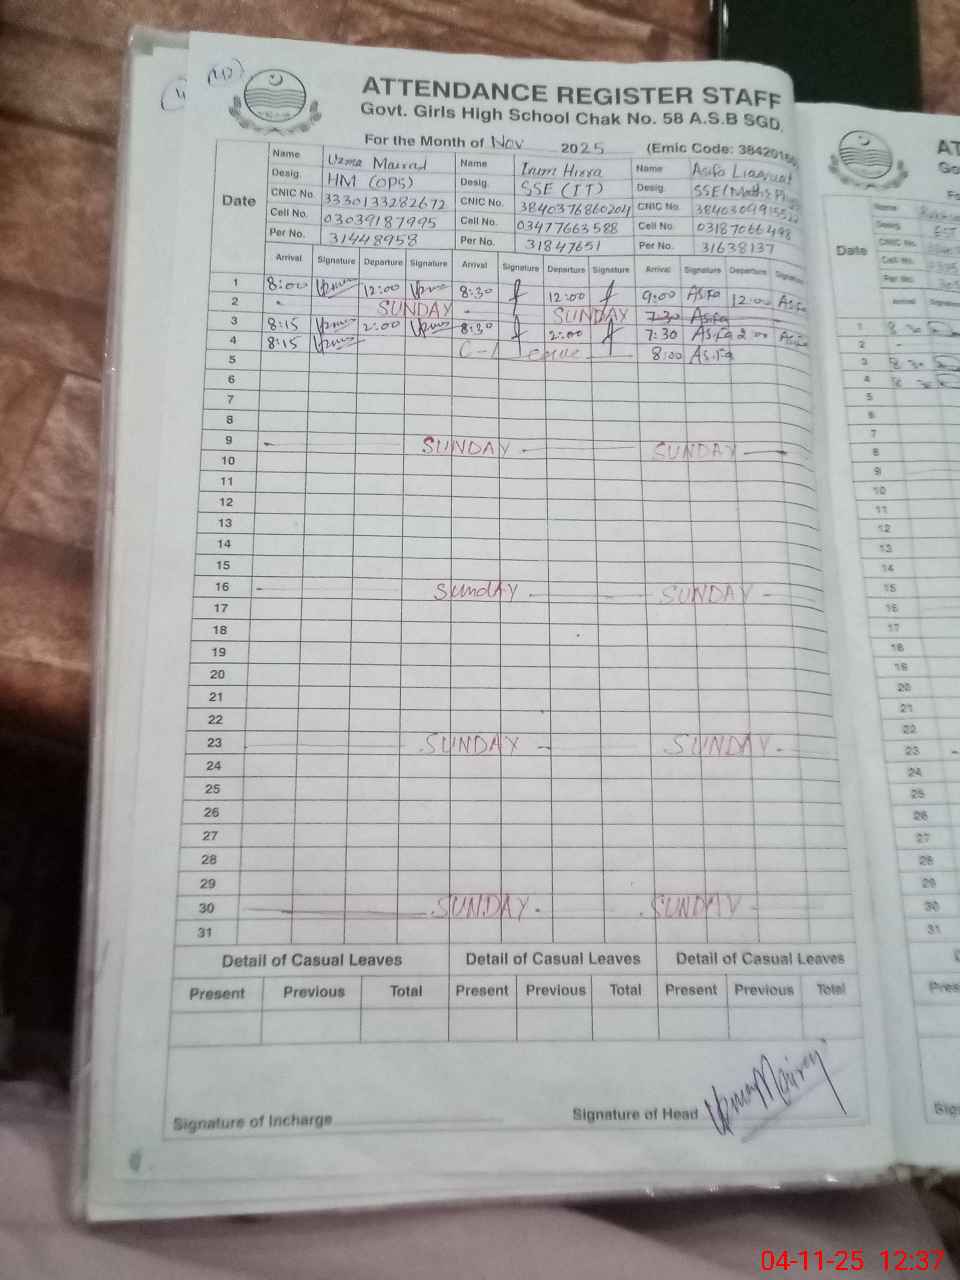 ATTENDANCE REGISTER STAFF
Govt. Girls High School Chak No. 58 A.S.B SGD.
For the Month of Nov 2025 (Emic Code: 38420168
Date Name Uzma Name Inum Hirra Name Asifa Liaquat
Desig. HM (OPS) Desig. SSE (IT) Desig. SSE (Maths
CNIC No. 3330133282672 CNIC No. 3840376860204 CNIC No.
Cell No. 03039187995 Cell No. 03477663588 Cell No. 03187066498
Per No. 31448958 Per No. 31847651 Per No. 31638137
Arrival Signature Departure Signature Arrival Signature Departure Signature Arrival Signature Departure Signature
1 8:00 12:00 8:30 12:00 9:00 Asifa 12:00 Asifa
2 SUNDAY SUNDAY 7:30 Asifa
3 8:15 2:00 8:30 2:00 7:30 Asifa 2:00 Asifa
4 8:15 C-Leave 8:00 Asifa
5
6
7
8
9 SUNDAY SUNDAY
10
11
12
13
14
15
16 SundAY SUNDAY
17
18
19
20
21
22
23 SUNDAY SUNDAY
24
25
26
27
28
29
30 SUNDAY SUNDAY
31
Detail of Casual Leaves Detail of Casual Leaves Detail of Casual Leaves
Present Previous Total Present Previous Total Present Previous Total
Signature of Incharge Signature of Head
Date
Name
Desig.
CNIC No.
Cell No.
Per No.
Arrival
1
2
3
4
5
6
7
8
9
10
11
12
13
14
15
16
17
18
19
20
21
22
23
24
25
26
27
28
29
30
31
04-11-25 12:37